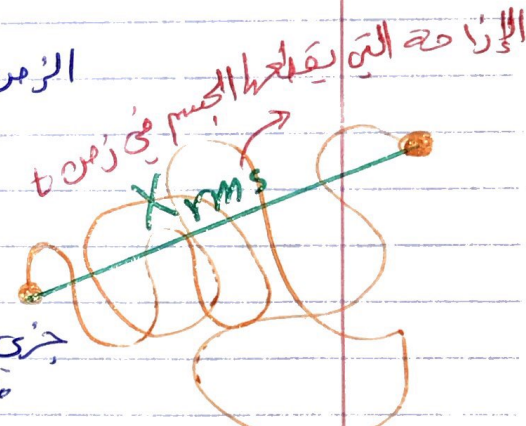 الإزاحة التي يقطعها الجسم في زمن t
Xrms